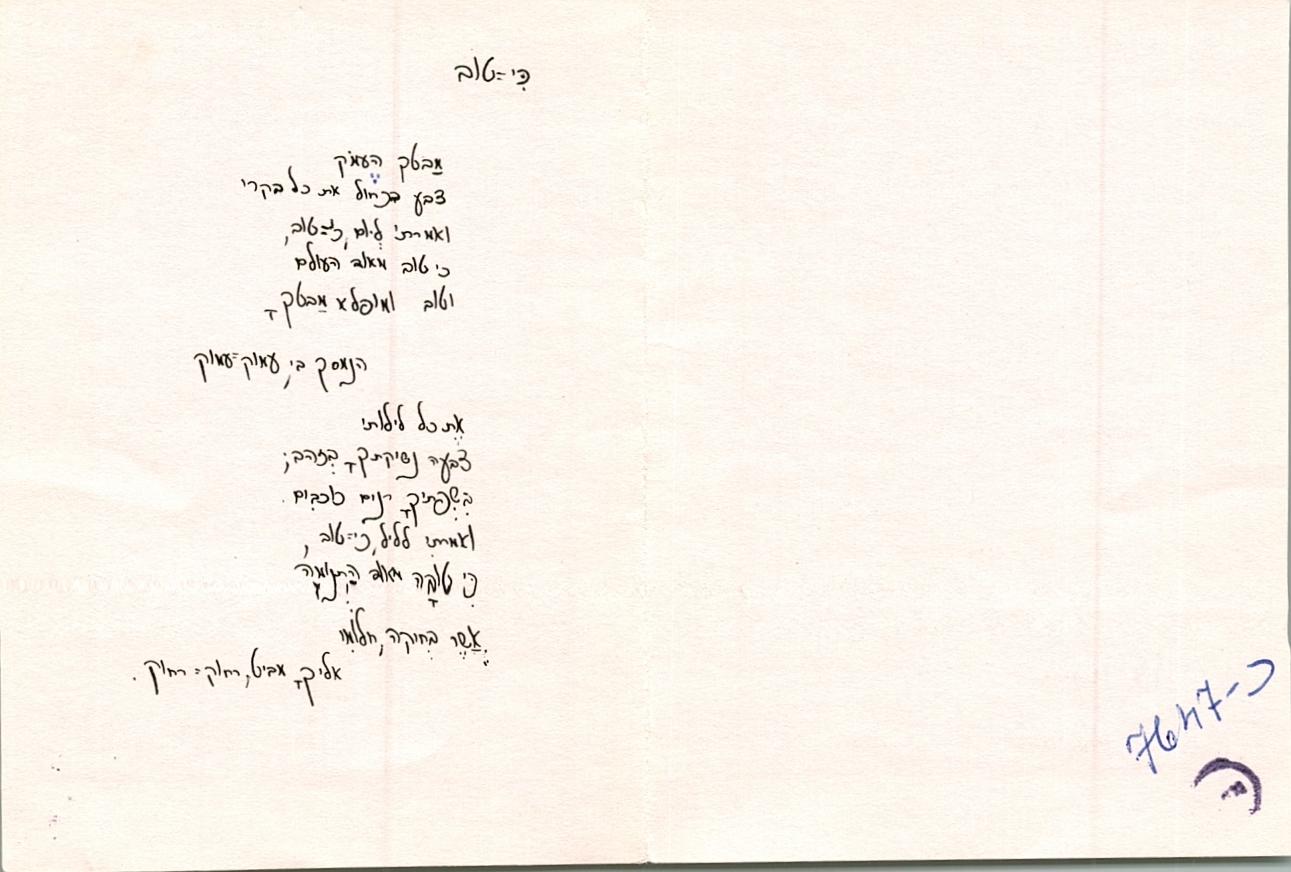 כִּי-טוב
מַבטך העמֹק
צבע בכחול את כל בקרי
ואמרתי ליום, כי-טוב,
כי טוב מאוד העולם
וטוב ומופלא מַבטךָ
הנמסך בי, עמוק-עמוק
אֶת כל לילותי
צבעה נשיקתךָ בְּזהב;
בִּשְׂפתיךָ רנים כוכבים.
ואמרתי לליל, כי-טוב,
כִּי טובָה מאוד התְנוּמה
אֲשֶר בְּחיקה, חלומִי
אליךָ מביט, רחוק-רחוק.
כ-7647